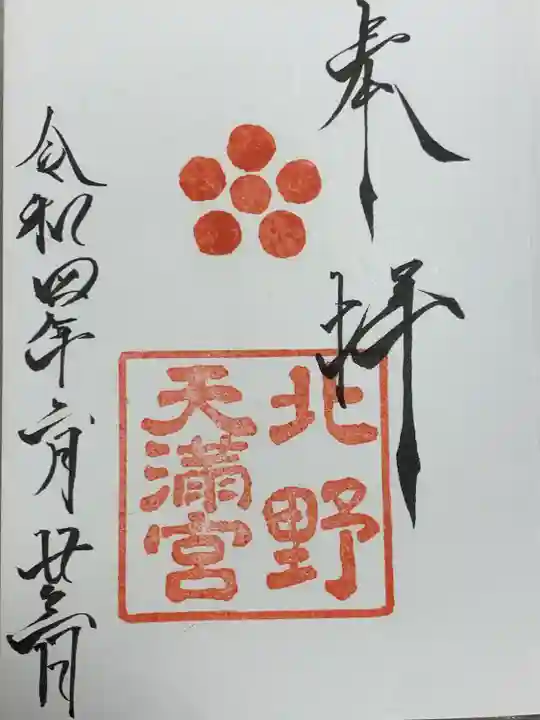 奉拝
北野
天満宮
令和四年六月廿日